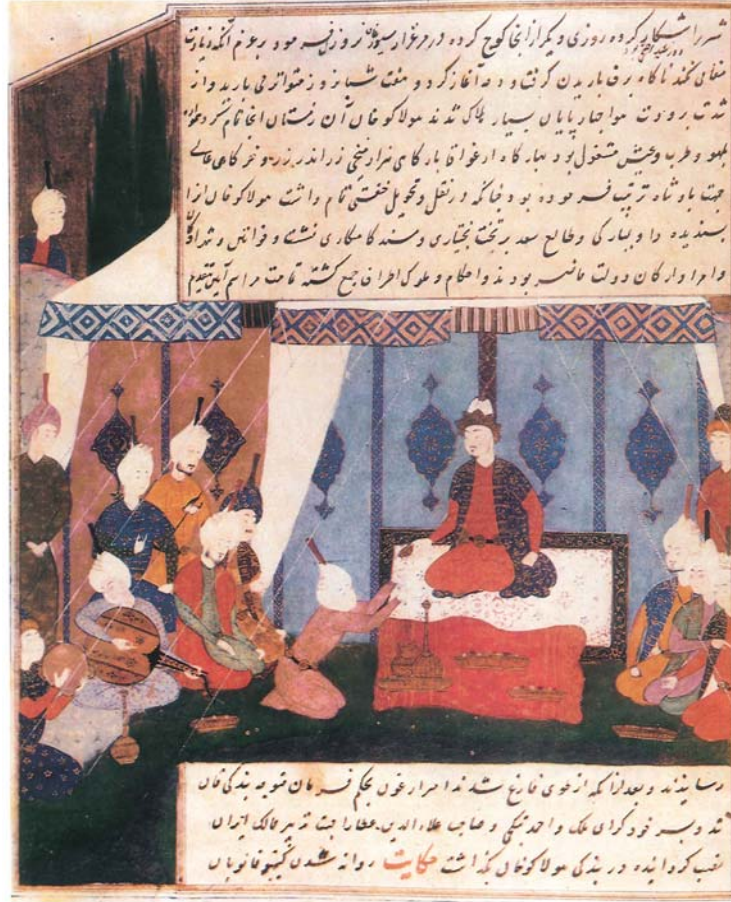 شهر را شکار کرده روزی دیگر از انجا کوچ کرده در مرغزار نزول فرمود بر عزم آنکه زیارت
کنند ناگاه برف باریدن گرفت و دمه آغاز کرد و هفت شبانروز متواتر می بارید و از
شدت برودت هوا چهارپایان بسیار هلاک شدند هولاکوخان آن زمستان انجا
بلهو و طرب و عیش مشغول بود بهار کاه ارغوا آقا بارگاهی هزار میخی زر اندر زر و خرگاهی عالی
جهت پادشاه ترتیب فرموده بود چنانکه در نقل و تحویل خفتی تمام داشت هولاکوخان انرا
پسندیده داو بهارکی و طالع سعد بر تخت بختیاری و مسند کامکاری نشست و خواتین و شهزادگان
و امرا و ارکان دولت حاضر بودند و حکام و ملوک اطراف جمع کشته قامت مراسم آیین تقدیم
رسانیدند و بعد از انکه از طوی فارغ شدند امیر ارغون بحکم فرمان متوجه بندگی قاان
شد و پسر خود کرای ملک و احمد بیتکچی و صاحب علاءالدین عطا را جهت تدبیر ممالک ایران
نصب کردانیده در بندکی هولاکوخان بگذاشت حکایت روانه شدن کیتبوقا نویان